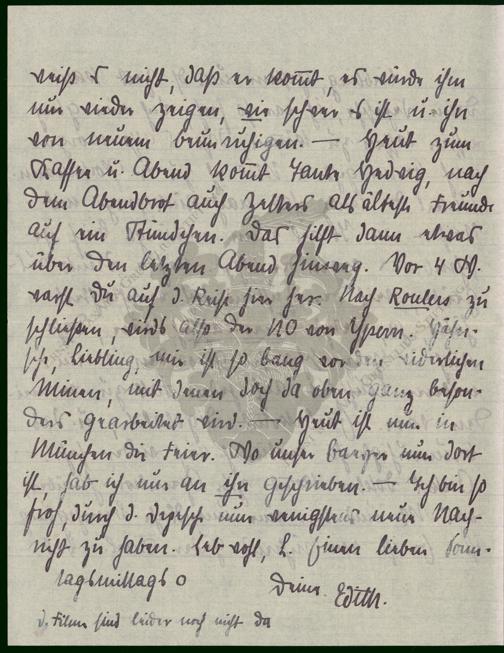 weiß es nicht, daß er kommt, es würde ihm
nur wieder zeigen, wie schwer es ist u. ihn
von neuem beunruhigen. — Heut zum
Kaffee u. Abend kommt Tante Hedwig, nach
dem Abendbrot auch Zelters als älteste Freunde
auf ein Stündchen. Das hilft dann etwas
über den letzten Abend hinweg. Vor 4 W.
warst Du auf d. Reise hier her. Nach Roulers zu
schließen, wirds also der NO von Ypern.
Liebling, mir ist so bang vor den widerlichen
Minen, mit denen doch da oben ganz beson-
ders gearbeitet wird. — Heut ist nun in
München die Feier. Wo unser nun dort
ist, hab ich nur an ihn geschrieben. — Ich bin so
froh, durch d. Depesche nun wenigstens neue Nach-
richt zu haben. Leb wohl, L. Einen lieben Sonn-
tagsmittags
Deine Edith.
D. Filme sind leider noch nicht da